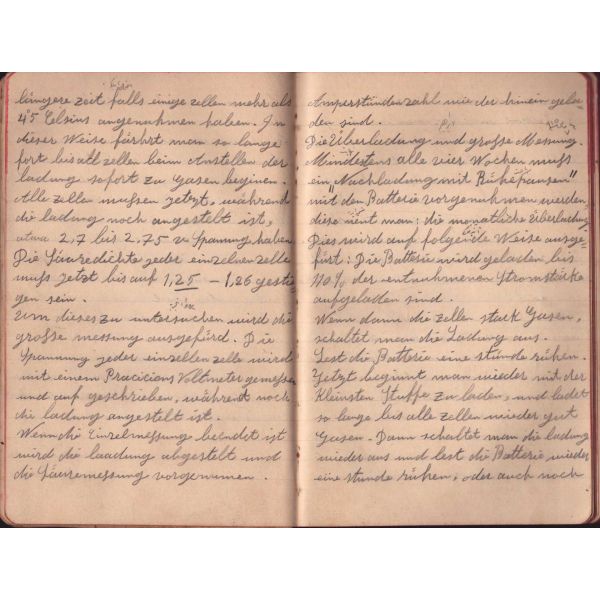 längere zeit falls einige zellen mehr als
45 Celsius angenahmen haben. In
dieser Weise fährt man so lange
fort bis all zellen beim Anstellen der
ladung sofort zu Gasen beginen.
Alle zellen mußen jetzt, während
die ladung noch angestelt ist,
etwa 2,7 bis 2.75 v Spannung haben
Die Säuredichte jeder einzelnen zelle
muß jetzt bis auf 1,25 – 1,26 gestie
gen sein.
Um dieses zu untersuchen wird die
große messung ausgefürd. Die
Spannung jeder einzellen zelle wird
mit einem Pracicions Voltmeter gemessen
und auf geschrieben, während noch
die ladung angestelt ist.
Wenn die Einzelmessung beendet ist
wird die laadung abgestelt und
die Säuremessung vorgenumen.
Amperstundenzahl wie der hinein gela=
den sind.
Die Überladung und große Messung.
Mindestens alle vier Wochen muß
ein "Nachladung mit Ruhepausen"
mit den Batterie vorgenuhmen werden
diese nent man: die monatliche Überladung
Dies wird auf folgende Weise ausge
fürt: Die Batterie wird geladen bis
110% der entnuhmenen Stromstärke
aufgeladen sind.
Wenn dann die zellen stark Gasen,
schaltet man die Ladung aus.
Lest die Batterie eine stunde rühen.
Jetzt beginnt man wieder mit der
kleinsten Stuffe zu laden, und ladet
so lange bis alle zellen wieder gut
Gasen. Dann schaltet man die ladung
wieder aus und lest die Batterie wieder
eine stunde rühen, oder auch noch